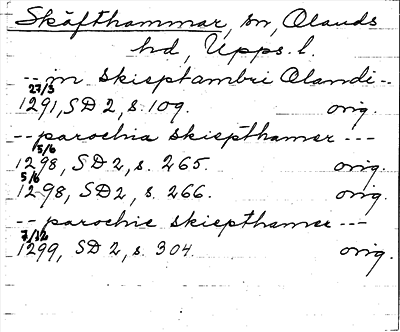 Skäfthammar, sn, Olands
hd, Upps. l.
-- in skieptambri Olandi --
27/3
1291, SD 2, s. 109. orig.
-- parochia skiepthamer ---
5/6
1298, SD 2, s. 265. orig.
5/6
1298, SD 2, s. 266. orig.
-- parochie skiepthamer ---
7/12
1299, SD 2, s. 304. orig.